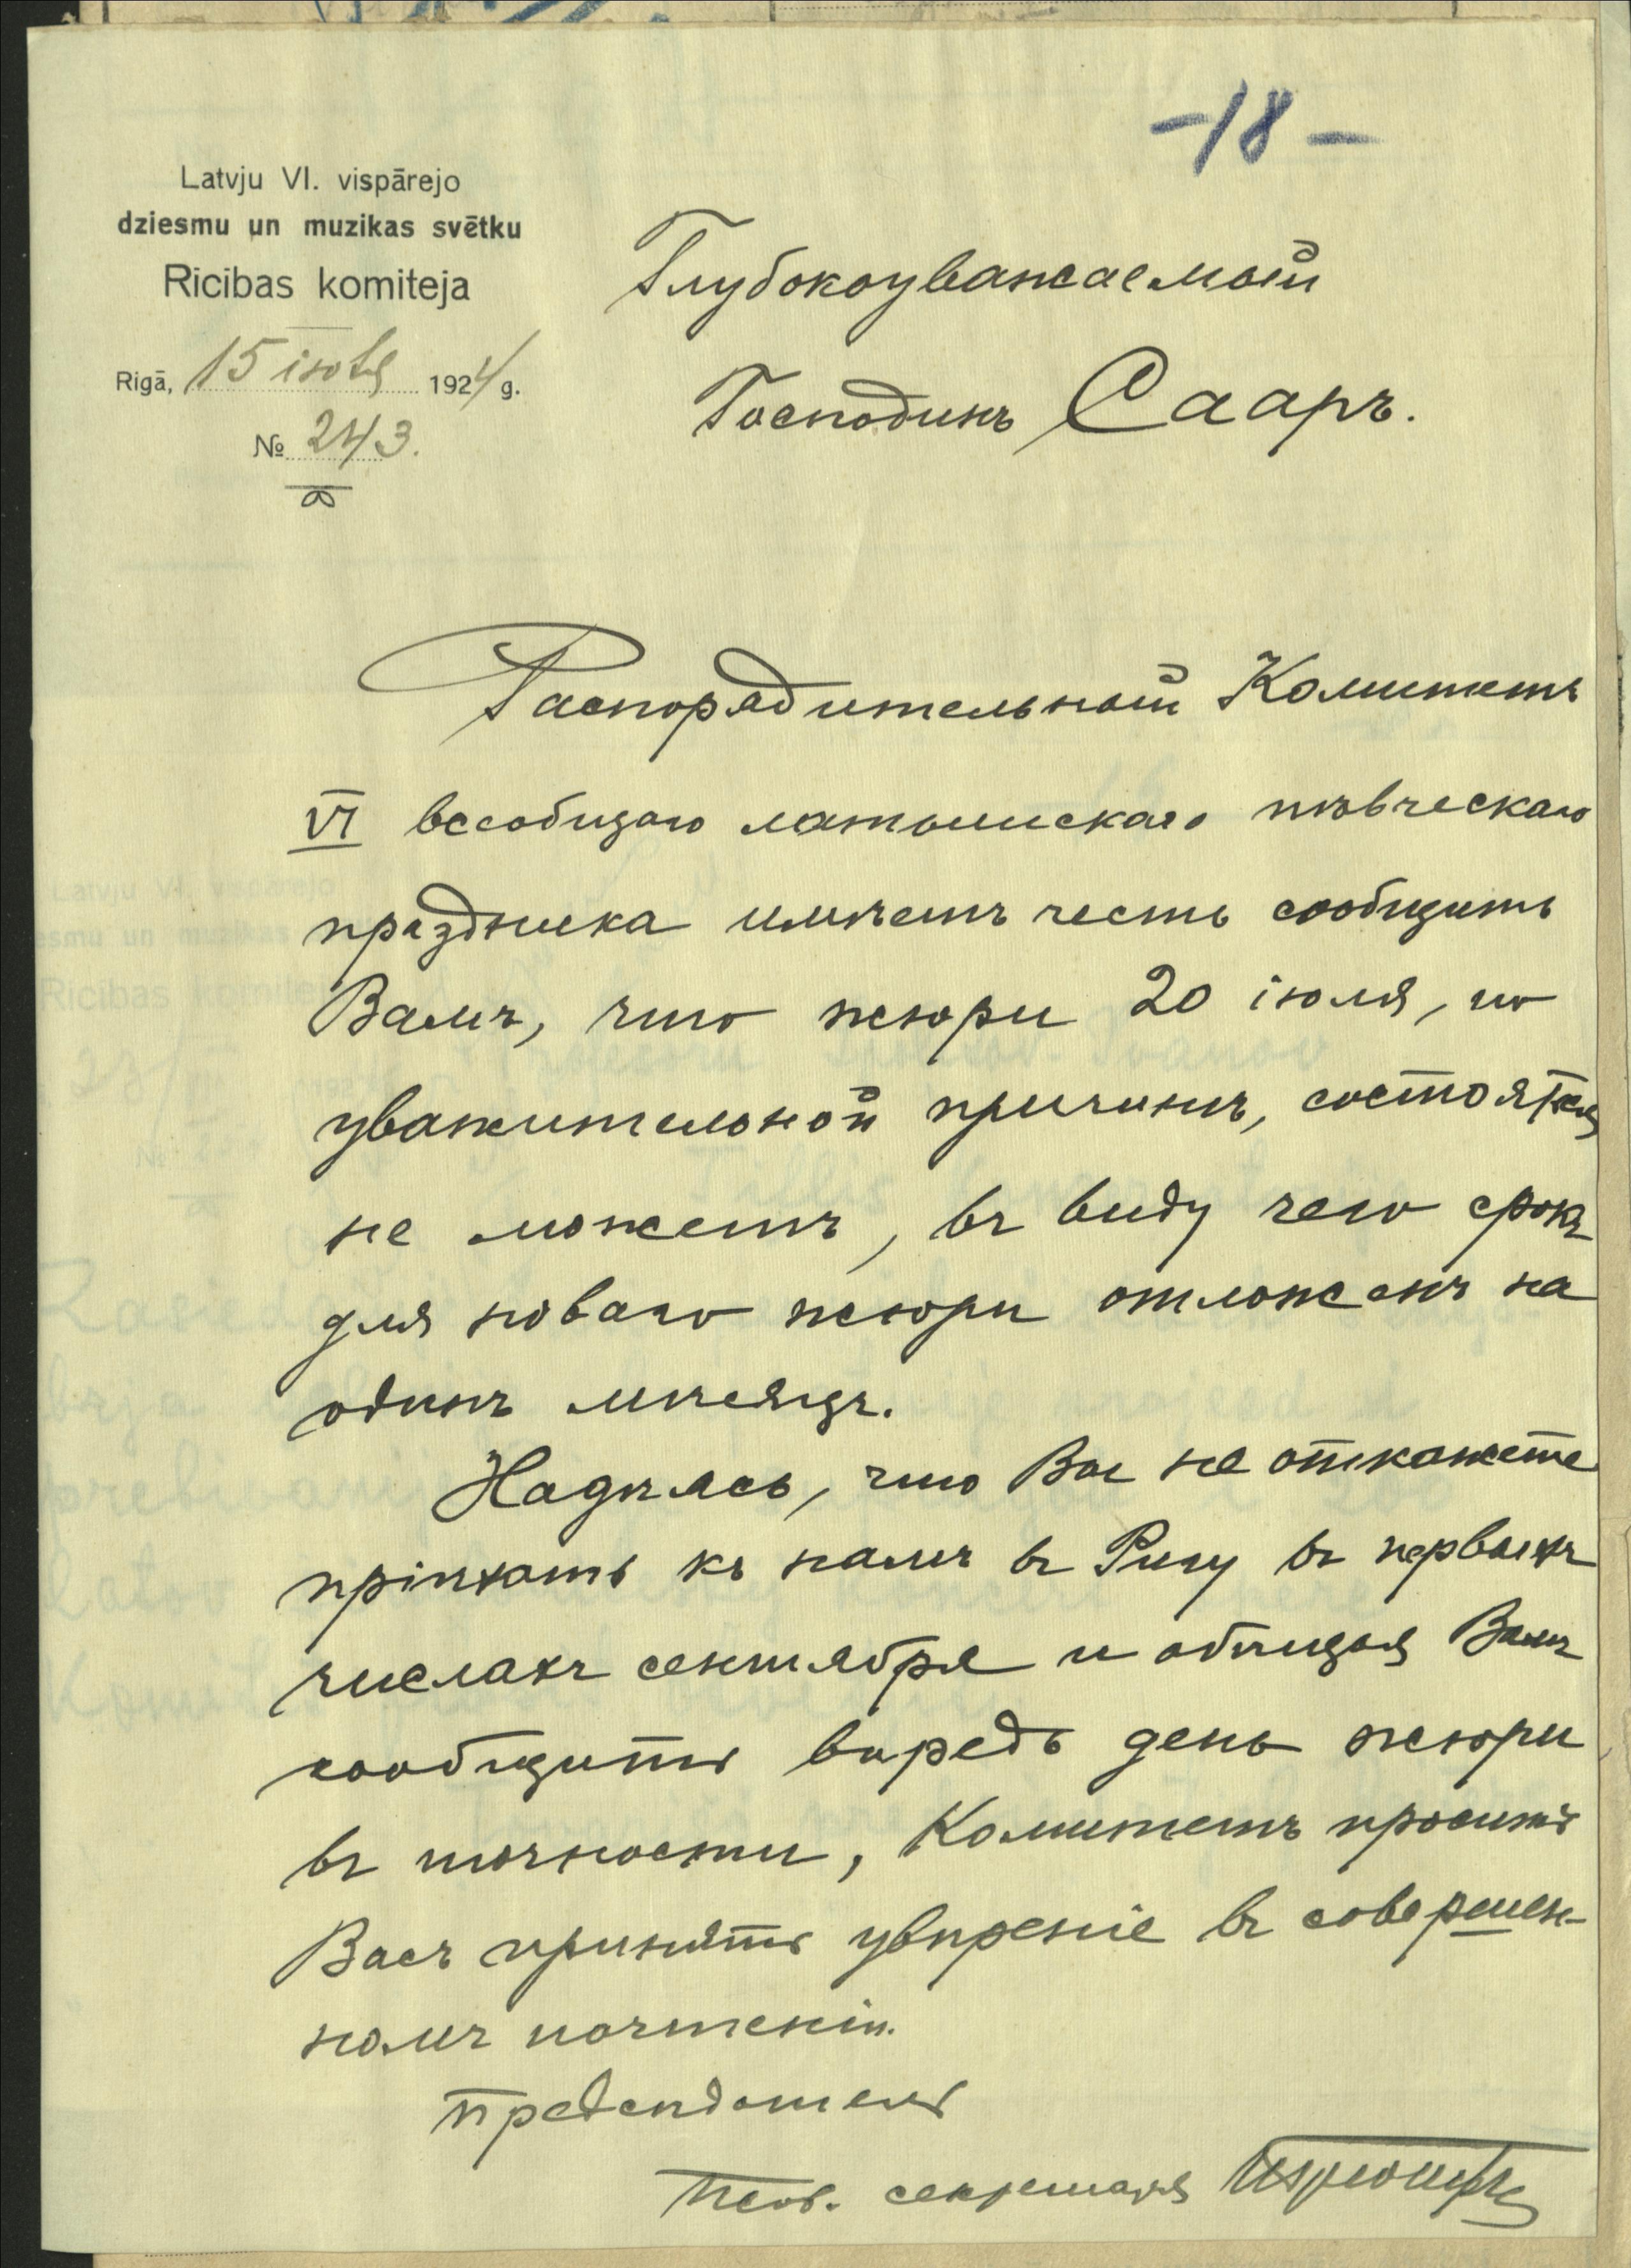 -18-
Latvju VI. vispārejo
dziesmu un muzikas svētku
Ricibas komiteja
Rigā, 15 іюля 1924 g.
№ 243.
Глубокоуважаемый
Господинъ Сааръ.
Распорядительный Комитетъ
VI всеобщаго латышскаго пѣвческаго
праздника имѣетъ честь сообщить
Вамъ, что жюри 20 іюля, по
уважительной причинѣ, состояться
не можетъ, въ виду чего срокъ
для новаго жюри отложенъ на
одинъ мѣсяцъ.
Надѣясь, что Вы не откажете
пріѣхать къ намъ въ Ригу въ первыхъ
числахъ сентября и обѣщая Вамъ
сообщить впредь день жюри
въ точности, Комитетъ проситъ
Васъ принять увѣреніе въ совершен-
номъ почтеніи.
Предсѣдатель
секретаря